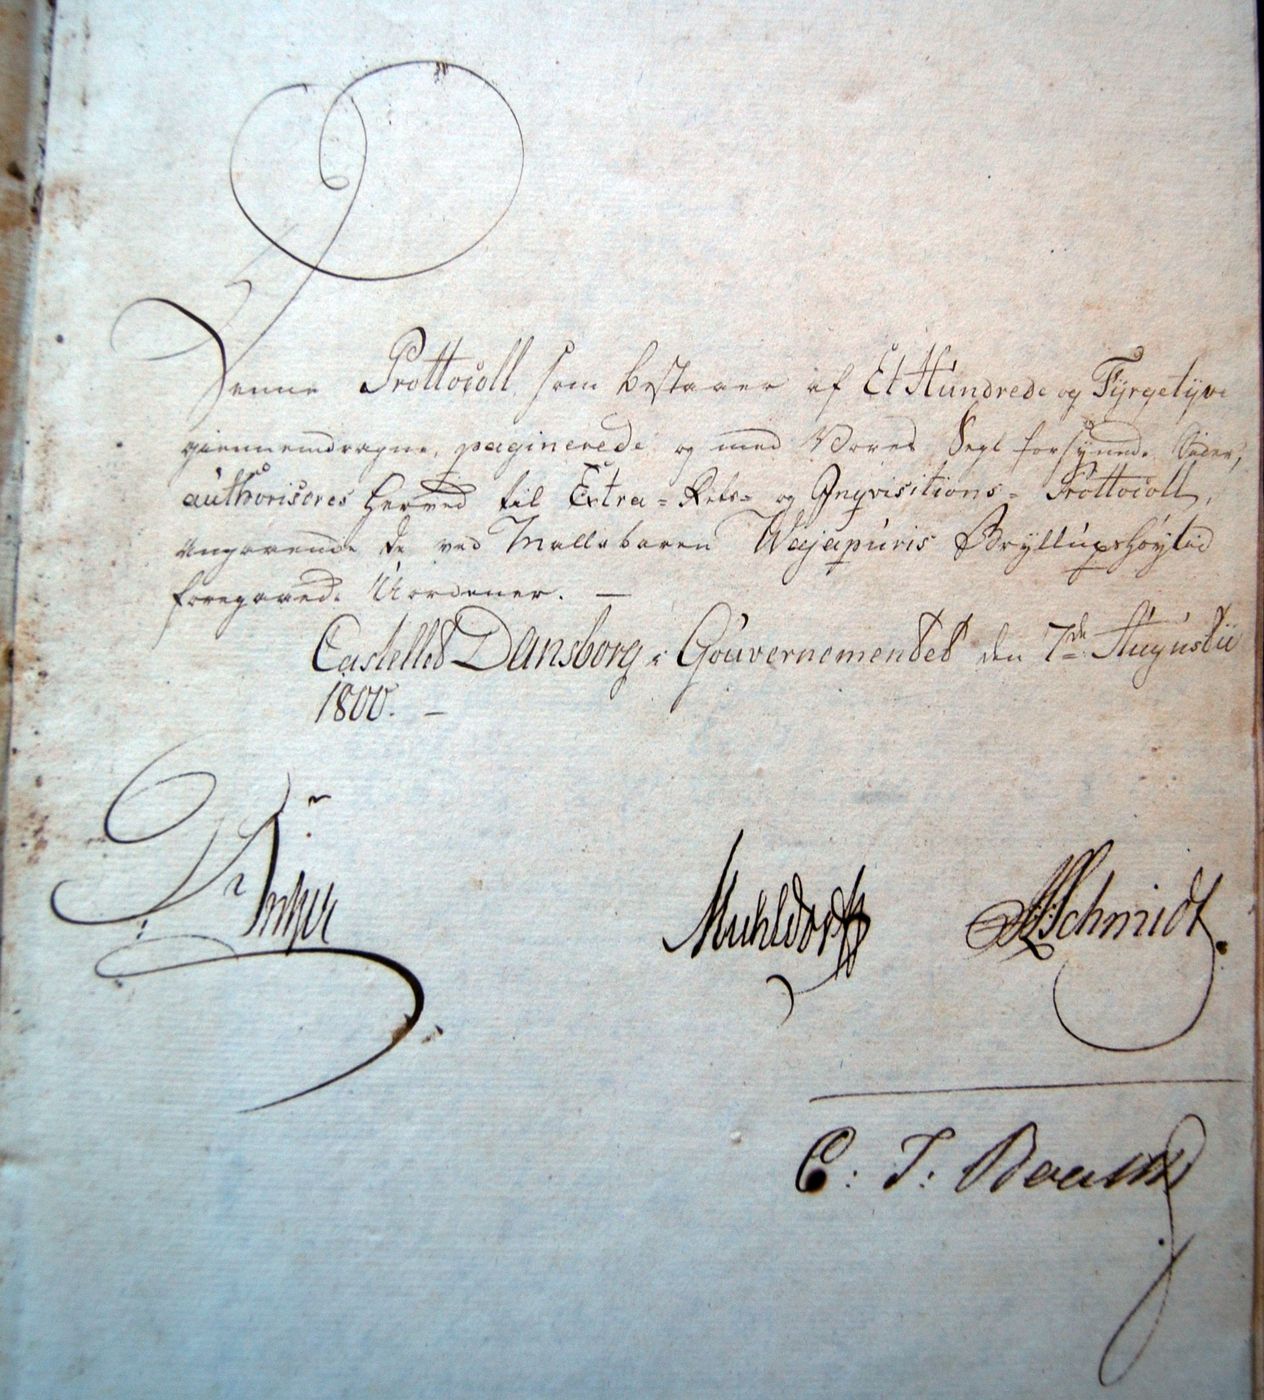 Denne Prottocoll som bestaaer af Et Hundrede og Fyrgetyve
giennemdragne, paginerede og med Vores Segl forsynede Sider,
authoriseres herved til Extra=Rets= og Inqvisitions=Prottocoll,
angaaende de ved Mallebaren Wajapuris Bryllupshøytid
foregaaede Uordener. —
Castellet Dansborg i Gouvernementet den 7de Augustii
1800. —
Anker
Muhldorff
Schmidt.
C: T: